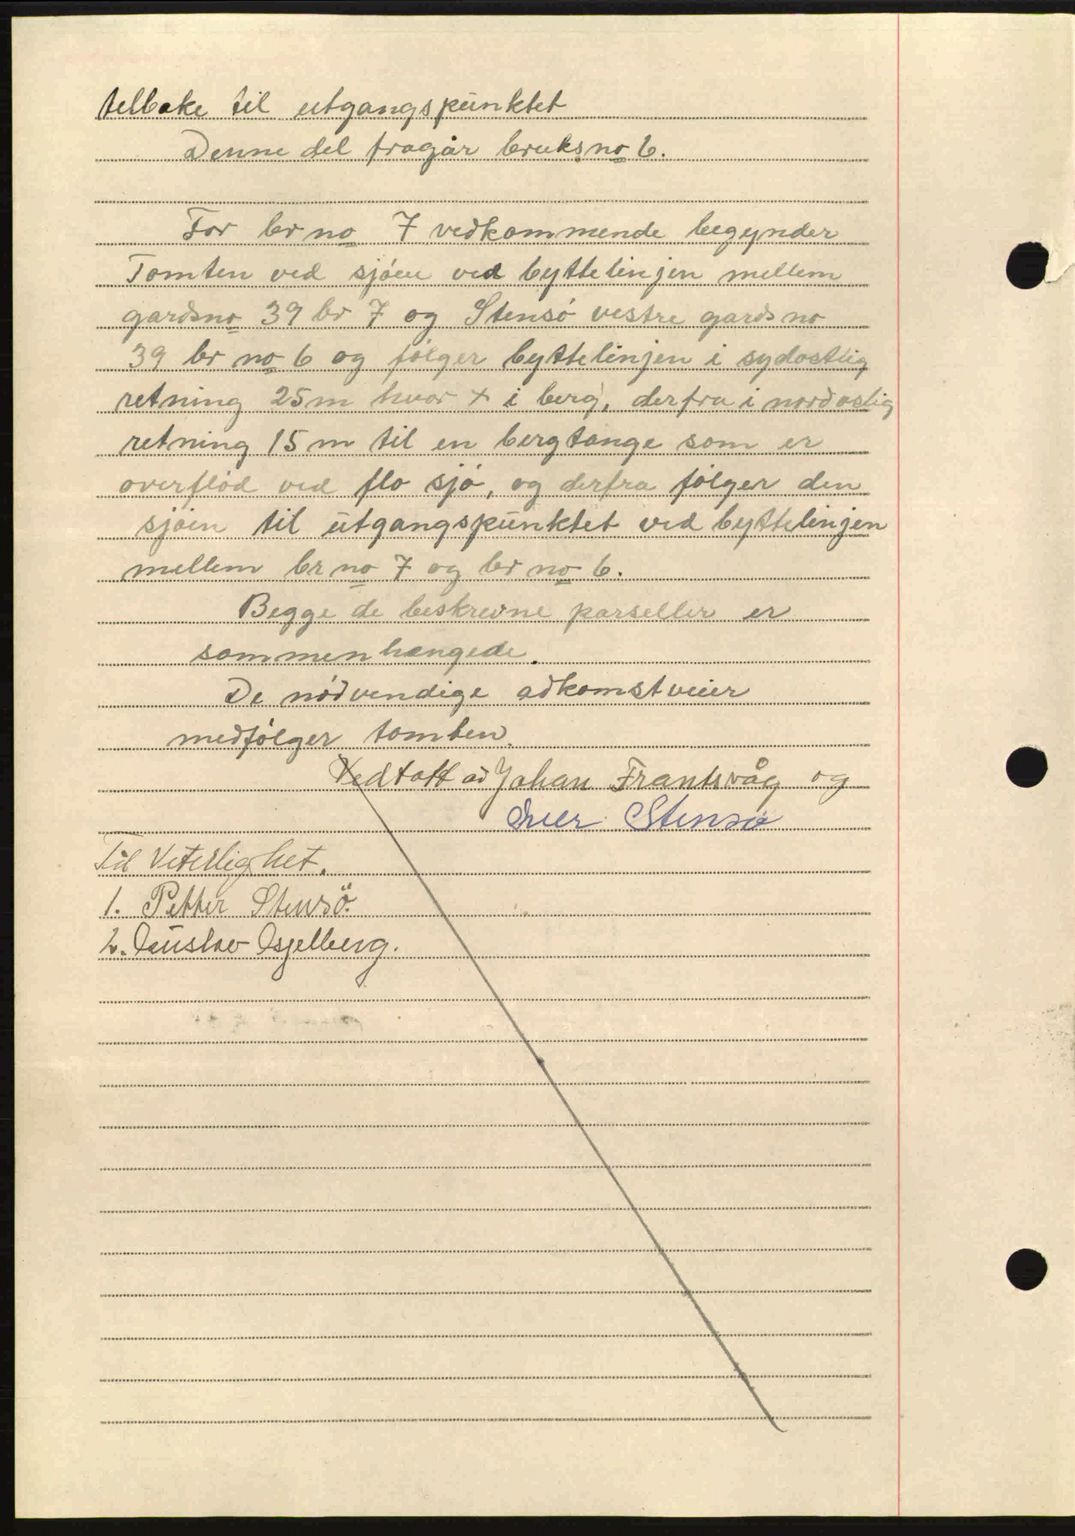 tilbake til utgangspunktet
Denne del fragår bruksno 6.
For br no 7 vedkommende begynder
Tomten ved sjøen ved byttelinjen mellem
gardsno 39 br 7 og Stensø vestre gards no
39 br no 6 og følger byttelinjen i sydostlig
retning 25 m hvor + i berg, derfra i nordostlig
retning 15 m til en bergtange som er
overflød ved flo sjø, og derfra følger den
sjøen til utgangspunktet ved byttelinjen
mellem br no 7 og br no 6.
Begge de beskrevne parseller er
sammenhængede.
De nødvendige adkomstveier
medfølger tomten.
Vedtatt ad Johan Frantsvåg og
Iver Stensø
Til Viterlighet.
1. Petter Stensö.
2. Gustav Gjelberg.